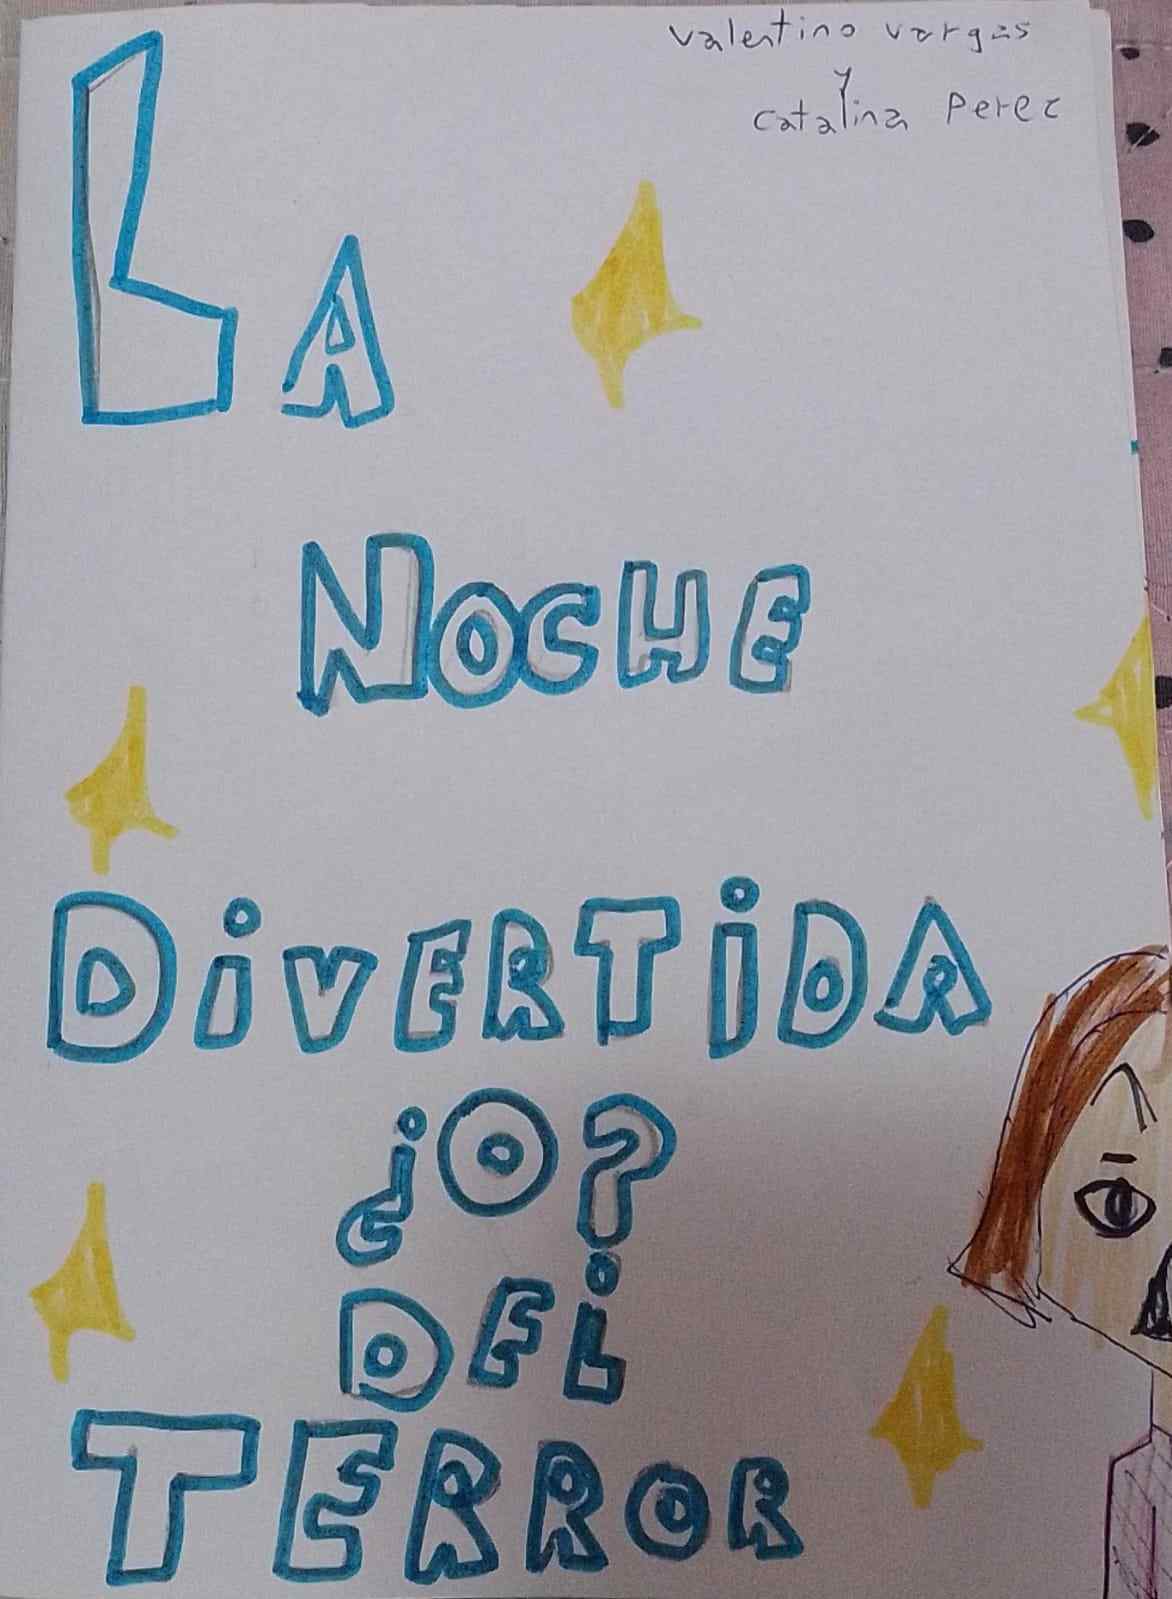 valentino vargas
y
catalina Perez
LA
NOCHE
DiVERTiDA
¿O?
DEL
TERROR